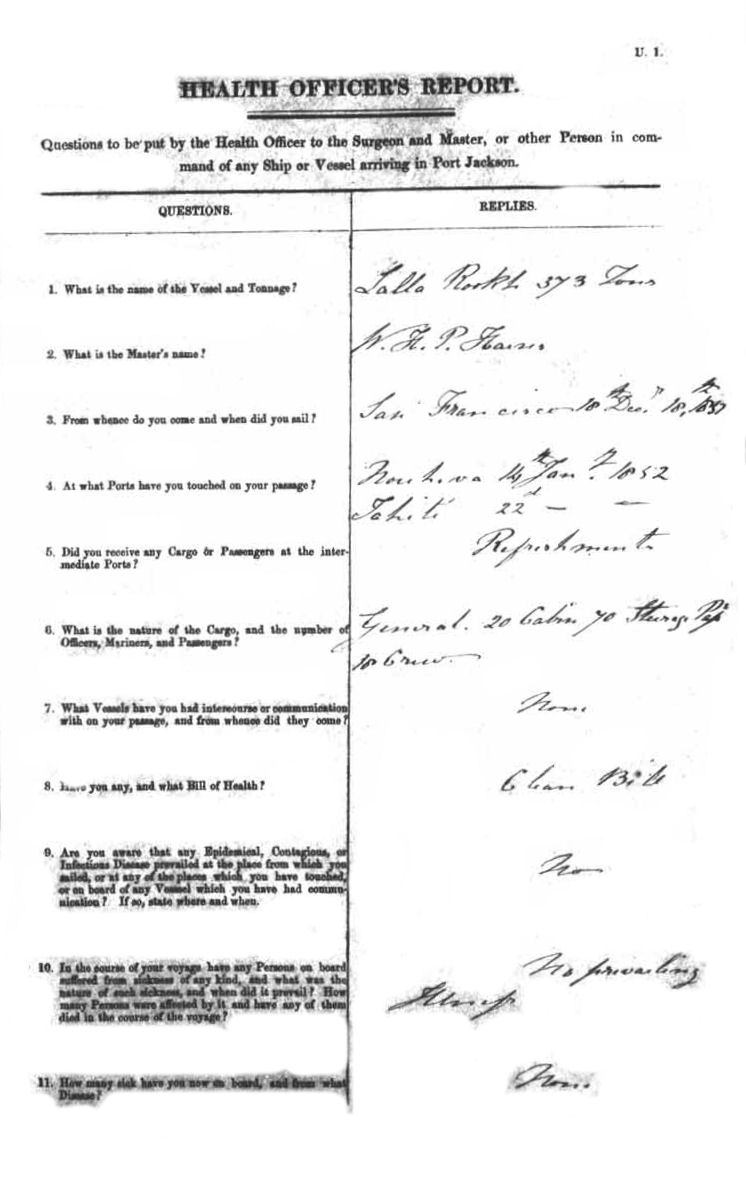 U. 1.
HEALTH OFFICER'S REPORT.
Questions to be put by the Health Officer to the Surgeon and Master, or other Person in com-
mand of any Ship or Vessel arriving in Port Jackson.
QUESTIONS.
REPLIES.
1. What is the name of the Vessel and Tonnage?
Lalla Rookh 373 Tons
2. What is the Master's name?
W. H. P.
3. From whence do you come and when did you sail?
San Francisco 18th Decr
4. At what Ports have you touched on your passage?
14th Jany. 1852
Tahiti 22d — —
5. Did you receive any Cargo or Passengers at the inter-
mediate Ports?
Refreshments
6. What is the nature of the Cargo, and the number of
Officers, Mariners, and Passengers?
General. 20 Cabin 70 Steerage
18 Crew.
7. What Vessels have you had intercourse or communication
with on your passage, and from whence did they come?
None
8. Have you any, and what Bill of Health?
Clean Bill
9. Are you aware that any Epidemical, Contagious, or
Infectious Disease prevailed at the place from which you
sailed, or at any of the places which you have touched,
or on board of any Vessel which you have had commu-
nication? If so, state where and when.
No
10. In the course of your voyage have any Persons on board
suffered from sickness of any kind, and what was the
nature of such sickness, and when did it prevail? How
many Persons were affected by it and have any of them
died in the course of the voyage?
No prevailing
Illness
11. How many sick have you now on board, and from what
Disease?
None.